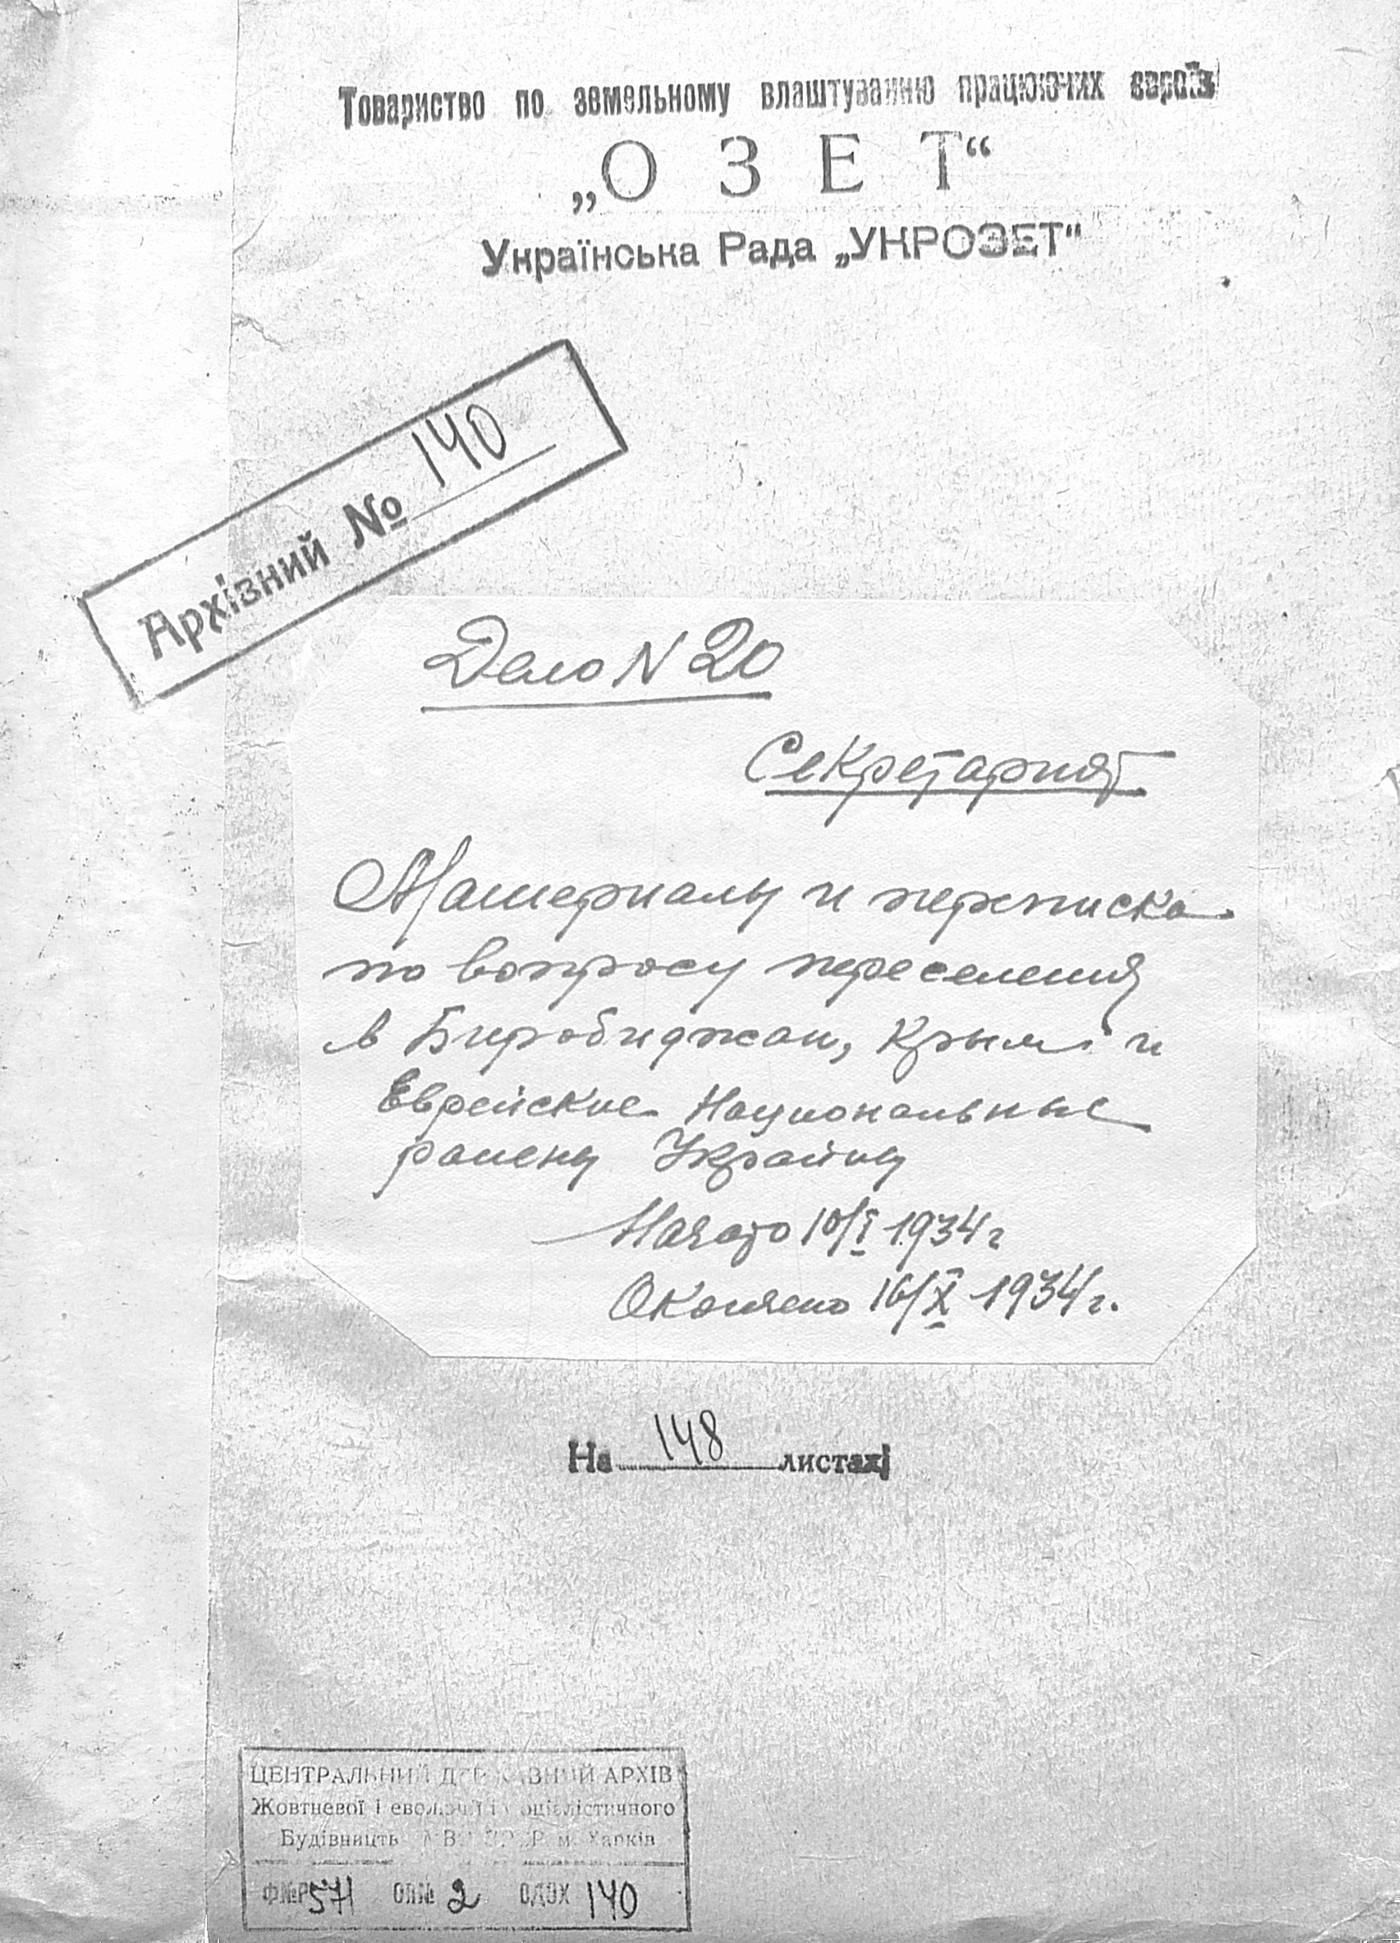 Товариство по земельному влаштуванню працюючих євреїв
„ОЗЕТ“
Українська Рада „УКРОЗЕТ“
Архівний № 140
Дело N 20
Секретарият
Материалы и переписка
по вопросу переселения
в Биробиджан, Крым и
Еврейские Национальные
районы Украйны
Начато 10/I 1934 г
Окончено 16/X 1934 г.
На 148 листах
ЦЕНТРАЛЬНИЙ ДЕРЖАВНИЙ АРХІВ
Жовтневої революції і соціалістичного
Будівництв м. Харків
Ф№Р 571 ОП№ 2 ОДЗХ 140